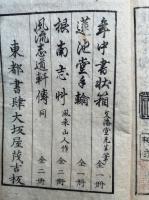 年中書状稿 文海堂先生筆 全一冊
蓮池堂手翰 全一冊
根南志艸 風来山人作 全二冊
風流志道軒傳 同 全二冊
東都書肆大坂屋茂吉板